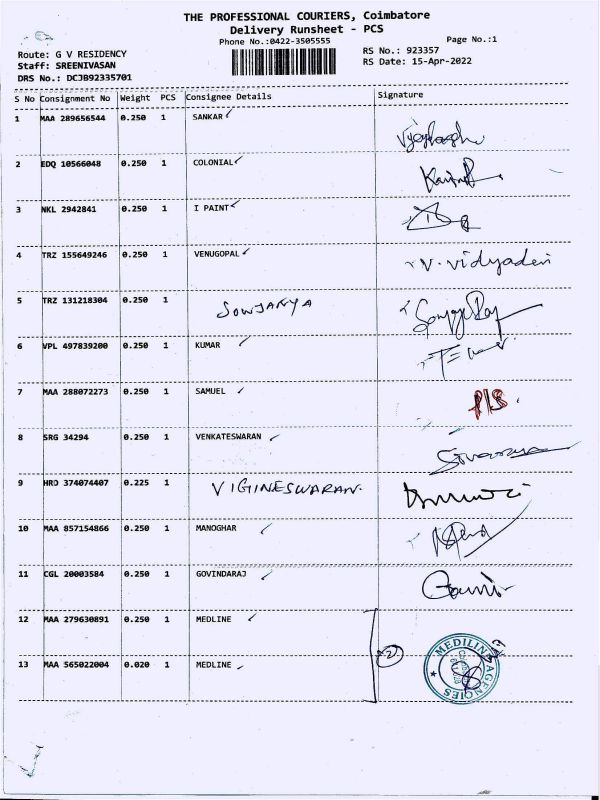 THE PROFESSIONAL COURIERS, Coimbatore
Delivery Runsheet - PCS
Phone No.:0422-3505555
Page No.:1
Route: G V RESIDENCY
RS No.: 923357
Staff: SREENIVASAN
RS Date: 15-Apr-2022
DRS No.: DCJB92335701
S No Consignment No Weight PCS Consignee Details Signature
1 MAA 289656544 0.250 1 SANKAR
2 EDQ 10566048 0.250 1 COLONIAL
3 NKL 2942841 0.250 1 I PAINT
4 TRZ 155649246 0.250 1 VENUGOPAL V. Vidyadevi
5 TRZ 131218304 0.250 1 SOWJANYA
6 VPL 497839200 0.250 1 KUMAR
7 MAA 288072273 0.250 1 SAMUEL
8 SRG 34294 0.250 1 VENKATESWARAN
9 HRD 374074407 0.225 1 VIGINESWARAN.
10 MAA 857154866 0.250 1 MANOGHAR
11 CGL 20003584 0.250 1 GOVINDARAJ
12 MAA 279630891 0.250 1 MEDLINE
2
13 MAA 565022004 0.020 1 MEDLINE
MEDILINE AGENCIES